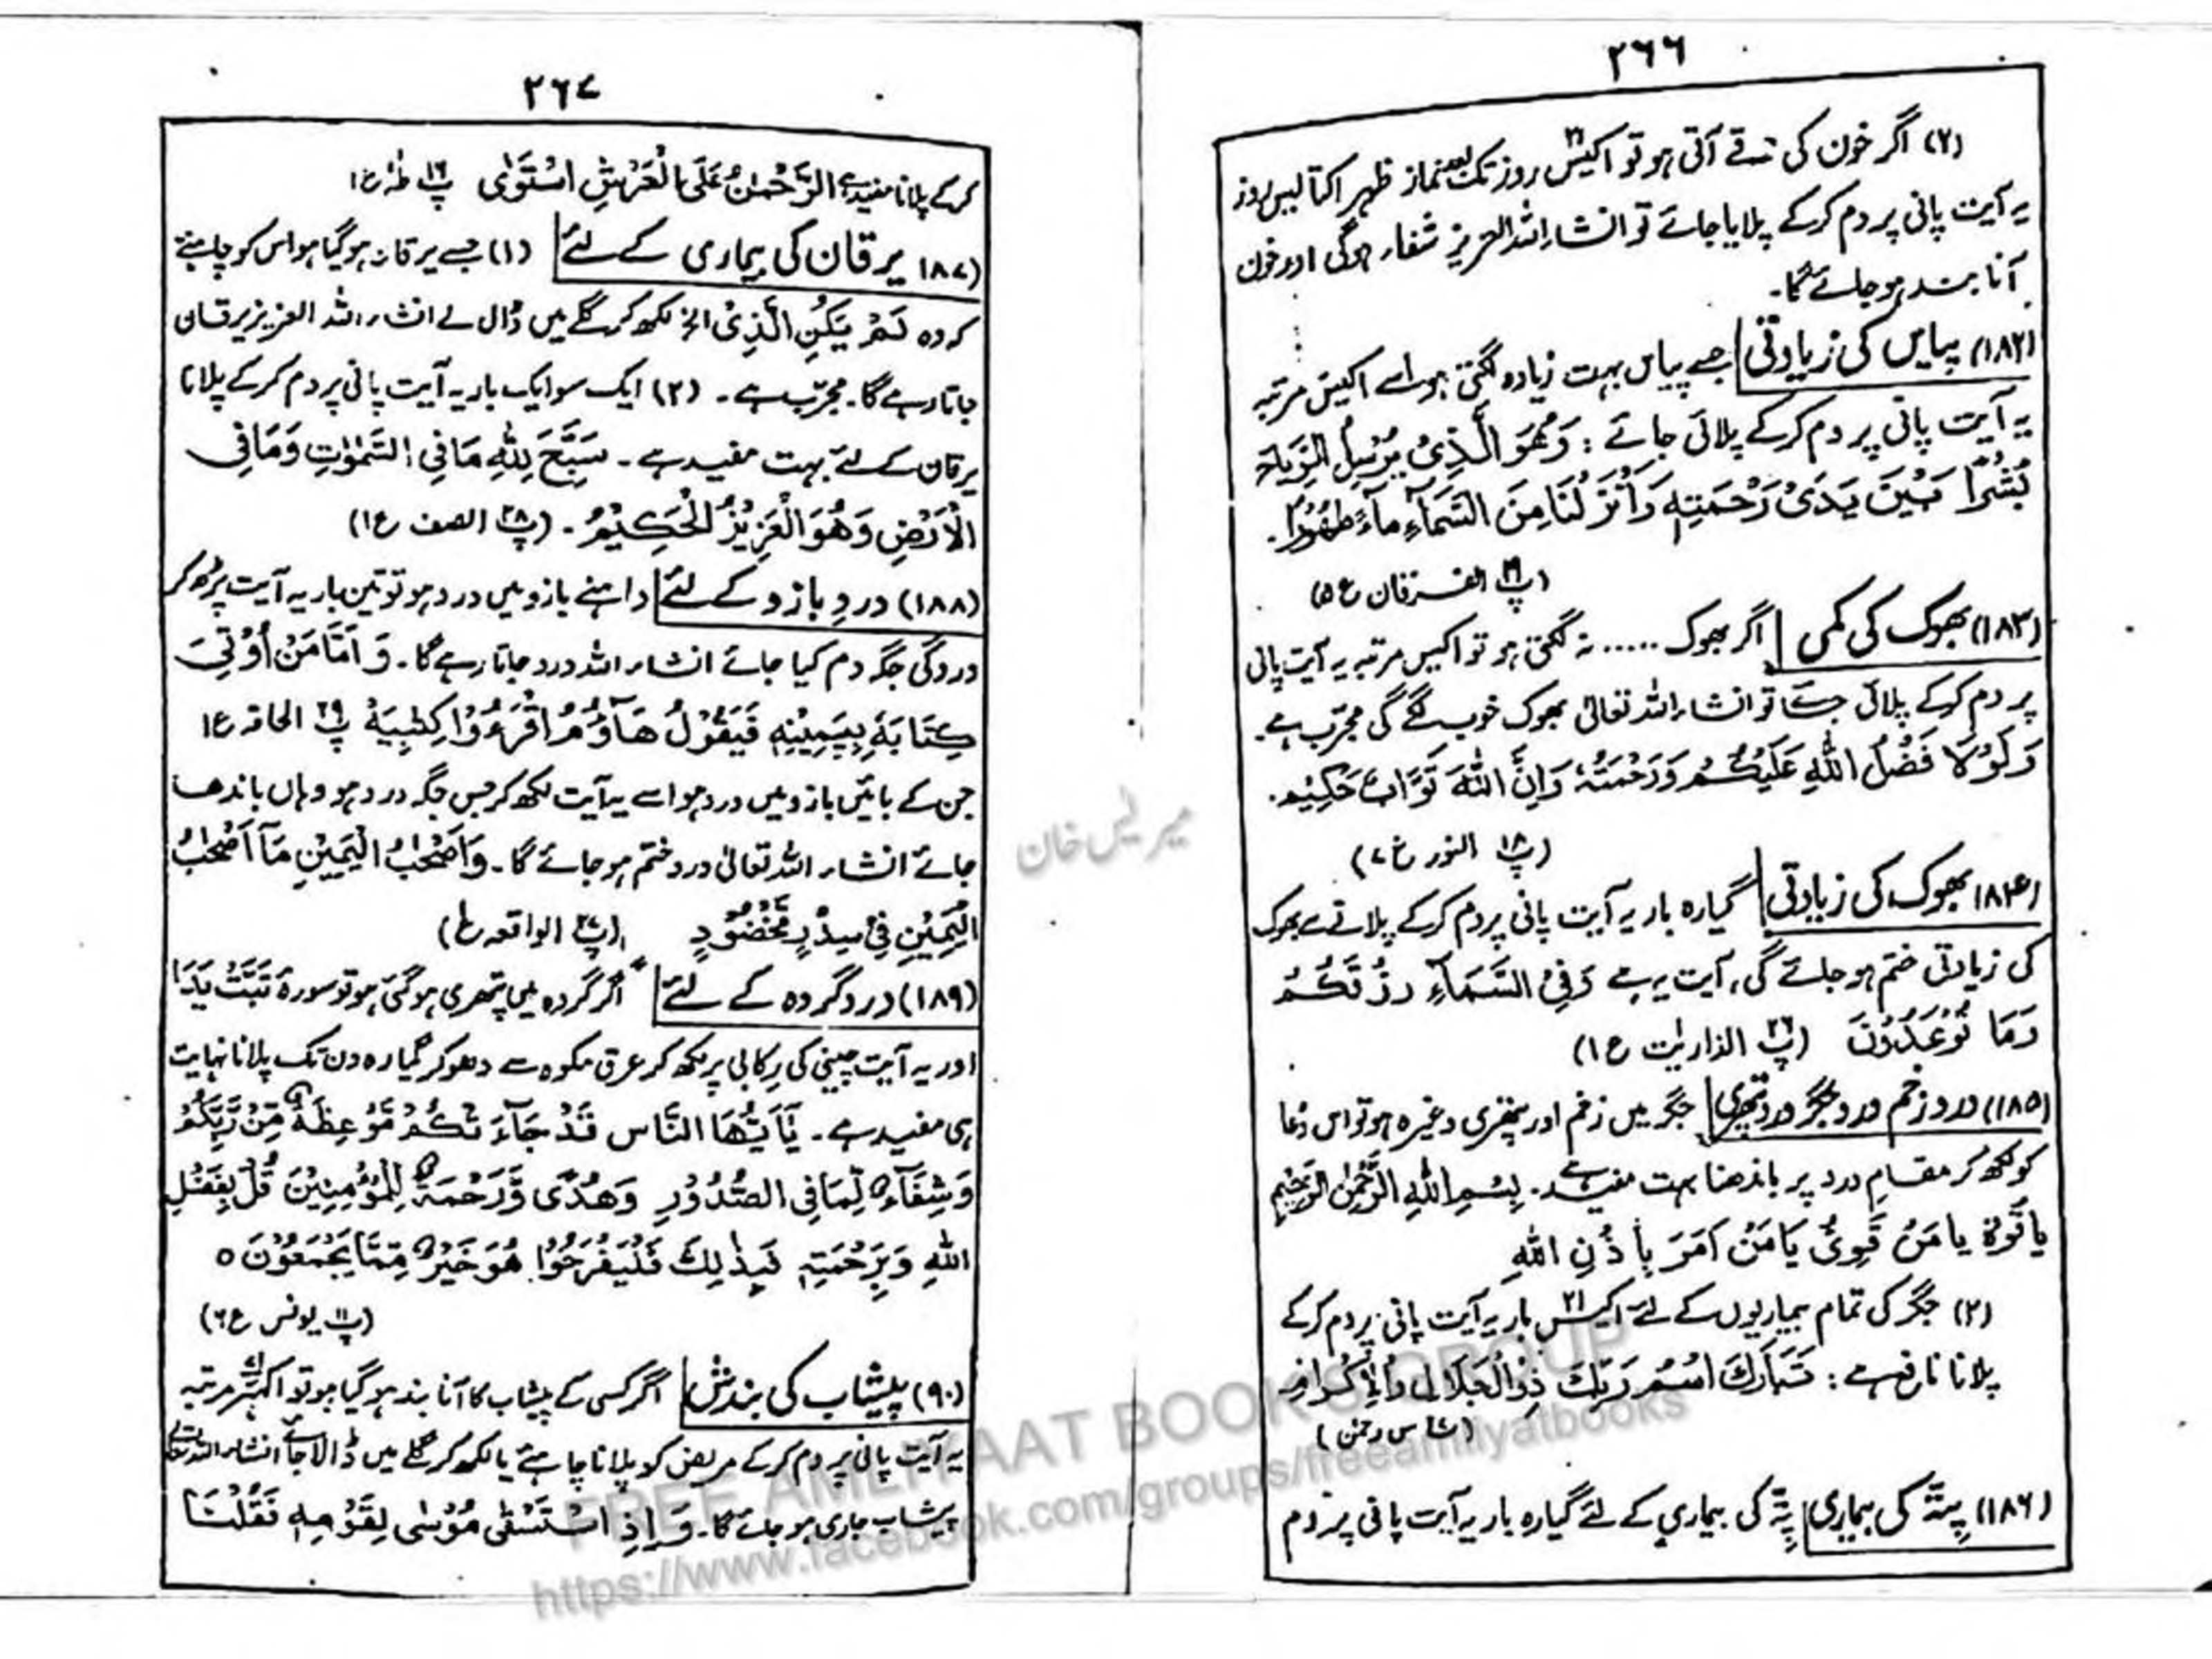 ۲۶۶
(۲) اگر خون کی قے آتی ہو تو اکیس ۲۱ روز تک بعد نماز ظہر اکتالیس روز
یہ آیت پانی پر دم کرکے پلایا جائے تو انشاء اللہ العزیز شفاء ہوگی اور خون
آنا بند ہو جائے گا۔
(۱۸۲) پیاس کی زیادتی جسے پیاس بہت زیادہ لگتی ہو اسے اکیس مرتبہ
یہ آیت پانی پر دم کرکے پلائی جائے : وَهُوَ الَّذِىْ يُرْسِلُ الرِّيَاحَ
بُشْرًا بَيْنَ يَدَىْ رَحْمَتِهٖ وَاَنْزَلْنَا مِنَ السَّمَآءِ مَآءً طَهُوْرًا.
(پ ۱۹ الفرقان ع ۵)
(۱۸۳) بھوک کی کمی اگر بھوک ..... نہ لگتی ہو تو اکیس مرتبہ یہ آیت پانی
پر دم کرکے پلائی جائے تو انشاء اللہ تعالیٰ بھوک خوب لگے گی مجرّب ہے۔
وَلَوْلَا فَضْلُ اللّٰهِ عَلَيْكُمْ وَرَحْمَتُهٗ وَاِنَّ اللّٰهَ تَوَّابٌ حَكِيْمٌ.
(پ ۱۸ النور ع ۷)
(۱۸۴) بھوک کی زیادتی گیارہ بار یہ آیت پانی پر دم کرکے پلانے سے بھوک
کی زیادتی ختم ہو جائے گی، آیت یہ ہے وَفِى السَّمَآءِ رِزْقُكُمْ
وَمَا تُوْعَدُوْنَ (پ ۲۶ الذاریٰت ع ۱)
(۱۸۵) درد زخم درد جگر درد پتھری جگر میں زخم اور پتھری وغیرہ ہو تو اس دعا
کو لکھ کر مقامِ درد پر باندھنا بہت مفید ہے۔ بِسْمِ اللّٰهِ الرَّحْمٰنِ الرَّحِيْمِ
يَا قُوَّةُ يَا مَنْ قَوِىُّ يَا مَنْ اَمَرَ بِاِذْنِ اللّٰهِ
(۲) جگر کی تمام بیماریوں کے لئے اکیس ۲۱ بار یہ آیت پانی پر دم کرکے
پلانا نافع ہے : تَبَارَكَ اسْمُ رَبِّكَ ذِى الْجَلَالِ وَالْاِكْرَامِ
(پ ۲۷ س رحمٰن)
(۱۸۶) پِتّہ کی بیماری پِتّہ کی بیماری کے لئے گیارہ بار یہ آیت پانی پر دم
۲۶۷
کرکے پلانا مفید ہے الرَّحْمٰنُ عَلَى الْعَرْشِ اسْتَوٰى پ ۱۶ طٰہٰ ع ۱
(۱۸۷) یرقان کی بیماری کے لئے (۱) جسے یرقان ہو گیا ہو اس کو چاہیئے
کہ وہ لَمْ يَكُنِ الَّذِىْ الخ لکھ کر گلے میں ڈال لے انشاء اللہ العزیز یرقان
جاتا رہے گا۔ مجرّب ہے۔ (۲) ایک سو ایک بار یہ آیت پانی پر دم کرکے پلانا
یرقان کے لئے بہت مفید ہے۔ سَبَّحَ لِلّٰهِ مَا فِى السَّمٰوٰتِ وَمَا فِى
الْاَرْضِ وَهُوَ الْعَزِيْزُ الْحَكِيْمُ۔ (پ ۲۸ الصف ع ۱)
(۱۸۸) دردِ بازو کے لئے داہنے بازو میں درد ہو تو تین بار یہ آیت پڑھ کر
درد کی جگہ دم کیا جائے انشاء اللہ درد جاتا رہے گا۔ وَاَمَّا مَنْ اُوْتِىَ
كِتَابَهٗ بِيَمِيْنِهٖ فَيَقُوْلُ هَآؤُمُ اقْرَءُوْا كِتٰبِيَهْ پ ۲۹ الحاقہ ع ۱
جن کے بائیں بازو میں درد ہو اسے یہ آیت لکھ کر جس جگہ درد ہو وہاں باندھا
جائے انشاء اللہ تعالیٰ درد ختم ہو جائے گا۔ وَاَصْحٰبُ الْيَمِيْنِ مَآ اَصْحٰبُ
الْيَمِيْنِ فِىْ سِدْرٍ مَّخْضُوْدٍ (پ ۲۷ الواقعہ ع ۱)
(۱۸۹) درد گردہ کے لئے اگر گردہ میں پتھری ہو گئی ہو تو سورہ تَبَّتْ يَدَا
اور یہ آیت چینی کی رکابی پر لکھ کر عرق مکوہ سے دھو کر گیارہ دن تک پلانا نہایت
ہی مفید ہے۔ يٰٓاَيُّهَا النَّاسُ قَدْ جَآءَتْكُمْ مَّوْعِظَةٌ مِّنْ رَّبِّكُمْ
وَشِفَآءٌ لِّمَا فِى الصُّدُوْرِ وَهُدًى وَّرَحْمَةٌ لِّلْمُؤْمِنِيْنَ قُلْ بِفَضْلِ
اللّٰهِ وَبِرَحْمَتِهٖ فَبِذٰلِكَ فَلْيَفْرَحُوْا هُوَ خَيْرٌ مِّمَّا يَجْمَعُوْنَ ○
(پ ۱۱ یونس ع ۶)
(۹۰) پیشاب کی بندش اگر کسی کے پیشاب کا آنا بند ہو گیا ہو تو اکہتر ۷۱ مرتبہ
یہ آیت پانی پر دم کرکے مریض کو پلانا چاہئے یا لکھ کر گلے میں ڈالا جائے انشاء اللہ تعالیٰ
پیشاب جاری ہو جائے گا۔ وَاِذِ اسْتَسْقٰى مُوْسٰى لِقَوْمِهٖ فَقُلْنَا
FREE AMLIYAAT BOOKS GROUP
https://www.facebook.com/groups/freeamliyatbooks